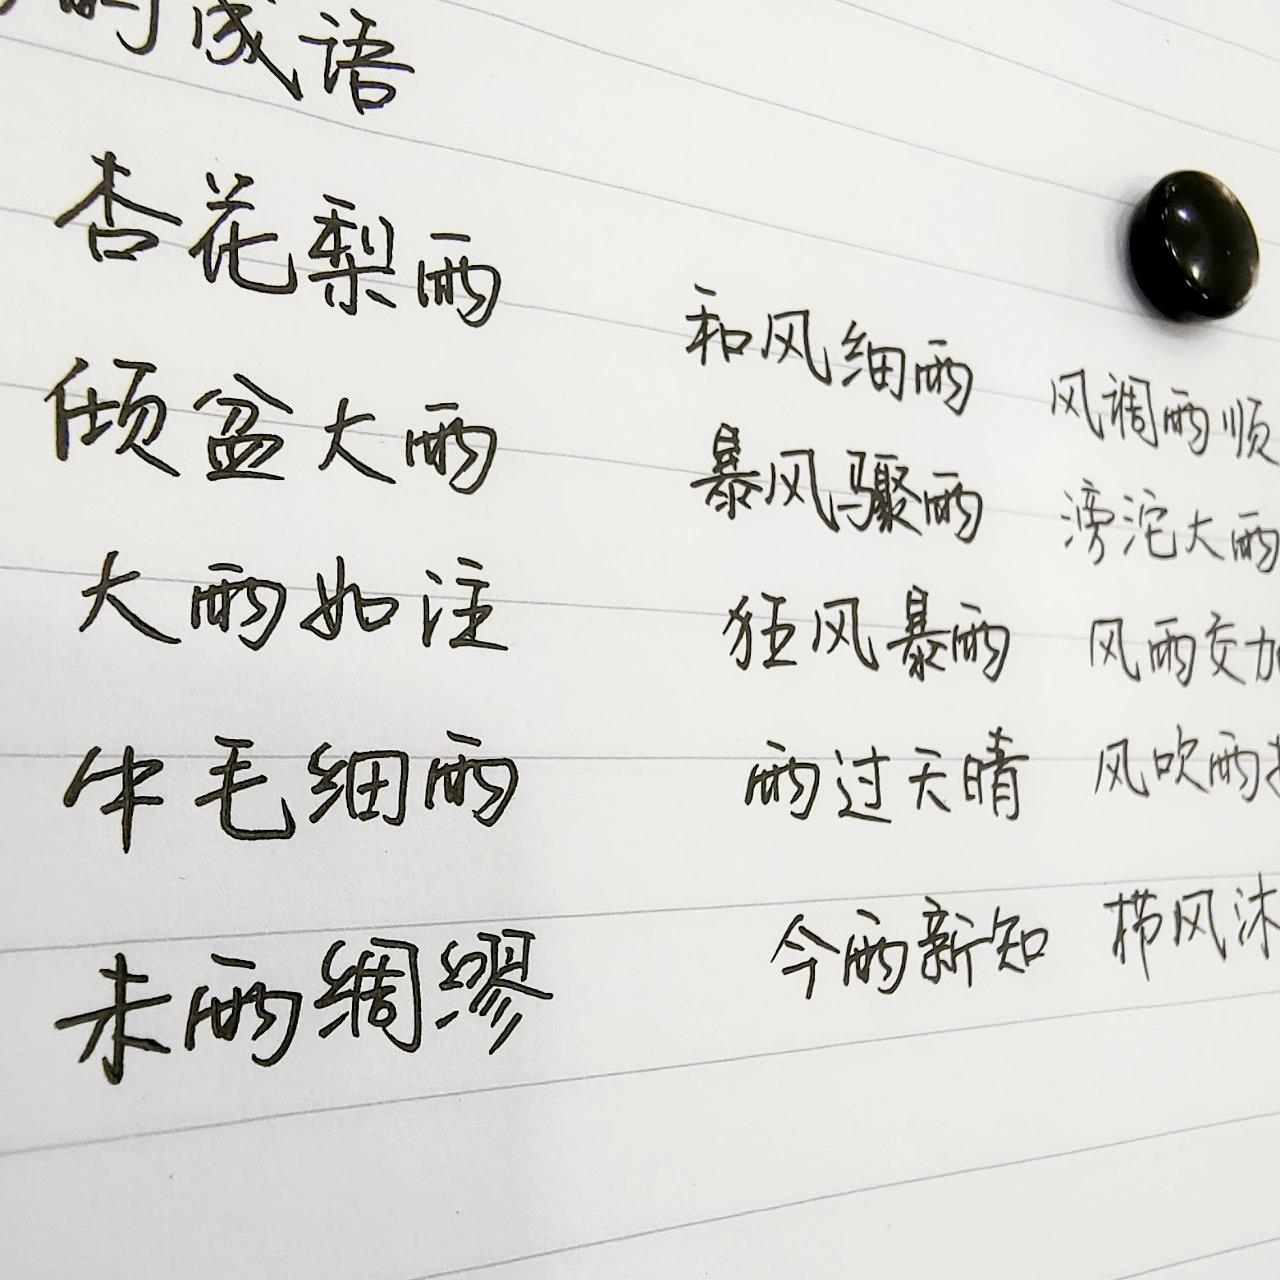 的成语
杏花梨雨
倾盆大雨
大雨如注
牛毛细雨
未雨绸缪
和风细雨 风调雨顺
暴风骤雨 滂沱大雨
狂风暴雨 风雨交加
雨过天晴 风吹雨
今雨新知 栉风沐